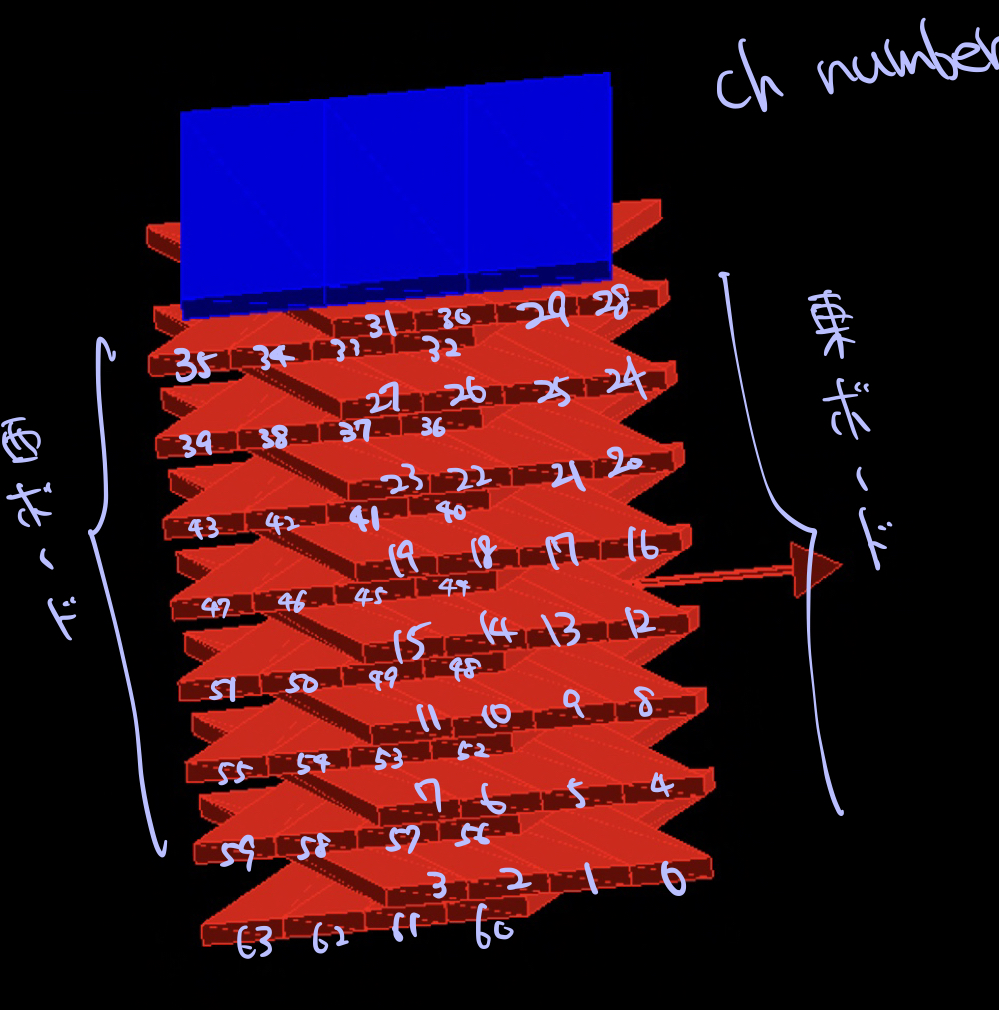 ch number
東ボード
西ボード
31 30 29 28
35 34 33 32
27 26 25 24
39 38 37 36
23 22 21 20
43 42 41 40
19 18 17 16
47 46 45 44
15 14 13 12
51 50 49 48
11 10 9 8
55 54 53 52
7 6 5 4
59 58 57 56
3 2 1 0
63 62 61 60